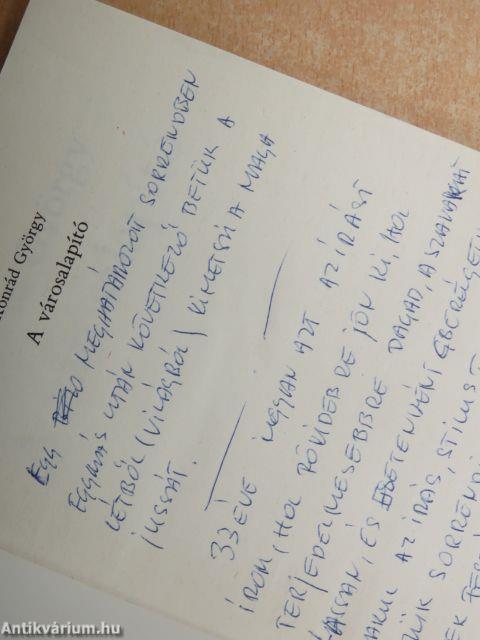 Konrád György
A városalapító
Egy MEGHATÁROZOTT SORRENDBEN
EGYMÁS UTÁN KÖVETKEZŐ BETŰK A
LÉTBŐL (VILÁGBÓL) KIMETSZI A MAGA
JUSSÁT.
33 ÉVE UGYAN AZT AZ ÍRÁST
ÍROM, HOL RÖVIDEBBRE JÖN KI, HOL
TERJEDELMESEBBRE DAGAD, A SZAVAKAT
LASSAN, ÉS ÉBERSÉGEM
AZ ÍRÁS, STÍLUST
SORREND
Antikvárium.hu